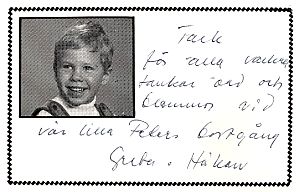 Tack
för alla vackra
tankar ord och
blommor vid
vår lilla Peters bortgång
Greta o Håkan